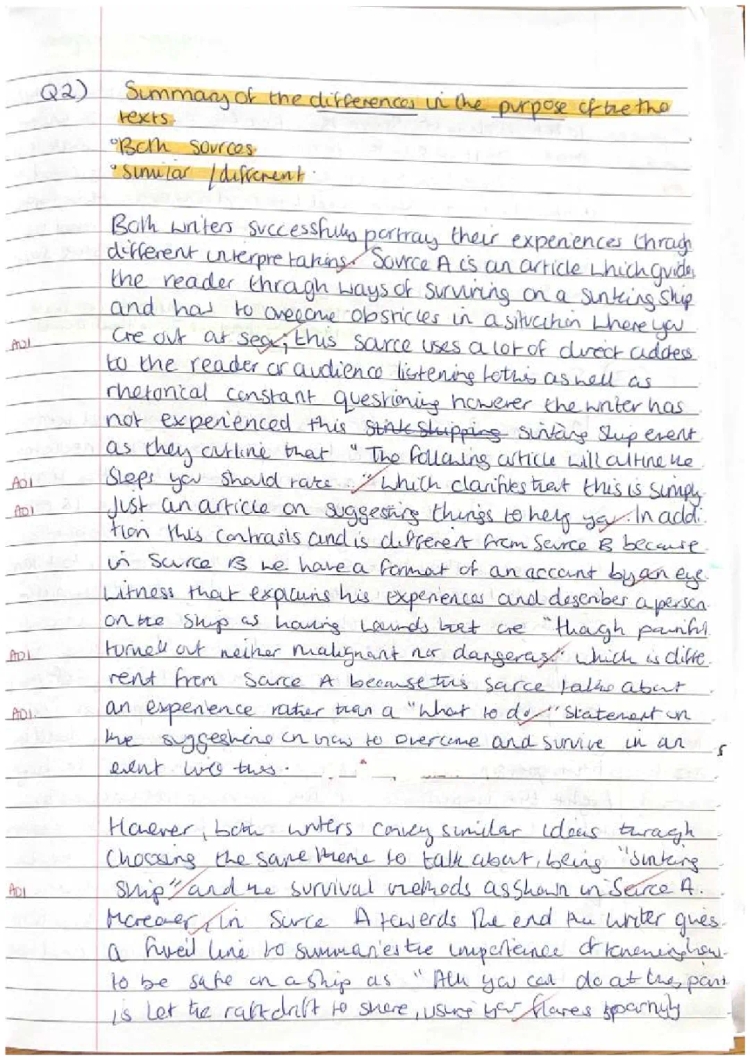 Q2) Summary of the differences in the purpose of the the
texts.
• Both sources
• similar / different.
Both writers successfully portray their experiences through
different interpretations. Source A is an article which guides
the reader through ways of surviving on a sinking ship
and has to overcome obsticles in a situation where you
AO1 are out at sea; this source uses a lot of direct address
to the reader or audience listening to this as well as
rhetorical constant questioning however the writer has
not experienced this sinking ship event
as they outline that "The following article will outline the
AO1 steps you should take." which clarifies that this is simply
AO1 just an article on suggesting things to help you. In addi-
tion this contrasts and is different from Source B because
in Source B we have a format of an account by an eye
witness that explains his experiences and describes a person
on the ship as having wounds that are "though painful
AO1 turned out neither malignant nor dangerous" which is diffe-
rent from Source A because this source talks about
AO1 an experience rather than a "what to do" statement on
the suggestions on how to overcome and survive in an 5
event like this.
However, both writers convey similar ideas through
choosing the same theme to talk about, being "sinking
AO1 ship" and the survival methods as shown in Source A.
Moreover, in Source A towards the end the writer gives
a final line to summaries the importance of knowing how
to be safe on a ship as "All you can do at this point
is let the raft drift to shore, using your flares sparingly